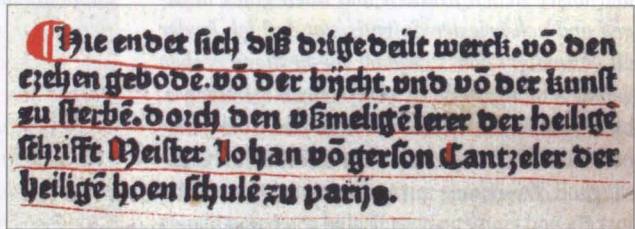 Hie endet sich diß drigedeilt werck.võ den
czehen gebodẽ.võ der bijcht.vnd võ der kunst
zu sterbẽ.dorch den vßmeligẽ lerer der heiligẽ
schrifft Meister Johan võ gerson Cantzeler der
heiligẽ hoen schulẽ zu parijs.